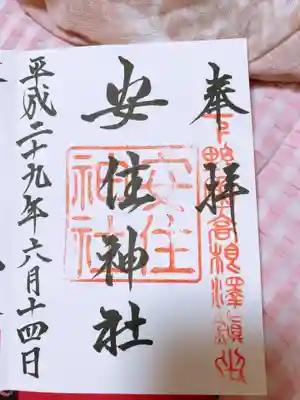 奉拝
下野國高根澤鎮守
安住神社
安住
神社
平成二十九年六月十四日